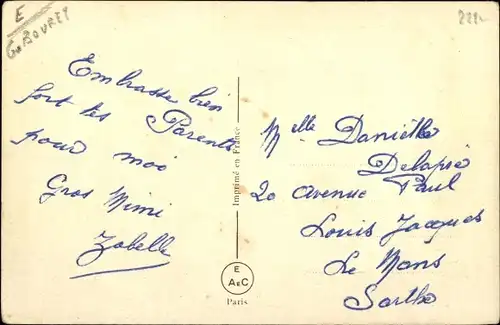 E
G. BOURET
Embrasse bien
fort tes Parents
pour moi
Gros Mimi
Zabelle
Imprimé en France
E
A E C
Paris
Melle Danièlle
Delapré
20 avenue Paul
Louis Jacques
Le Mans
Sarthe